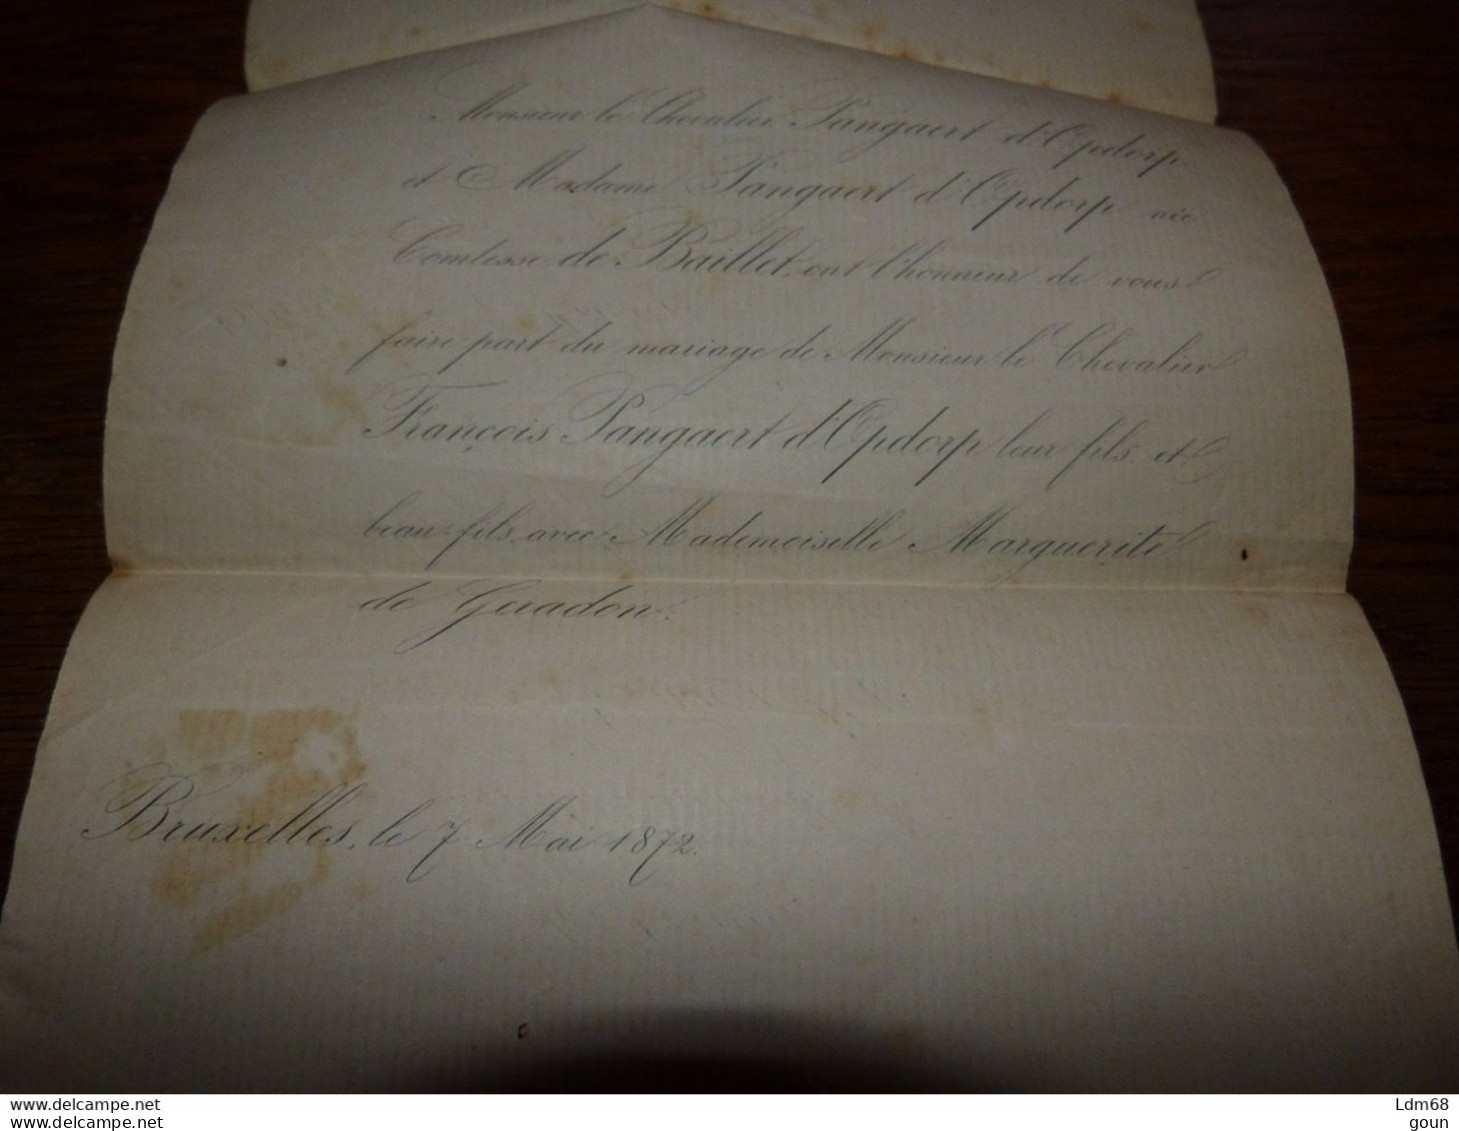 Monsieur le Chevalier Pangaert d'Opdorp
et Madame Pangaert d'Opdorp née
Comtesse de Baillet, ont l'honneur de vous
faire part du mariage de Monsieur le Chevalier
François Pangaert d'Opdorp leur fils et
beau-fils avec Mademoiselle Marguerite
de Geradon.
Bruxelles, le 7 Mai 1872.
www.delcampe.net
www.delcampe.net
Ldm68
goun